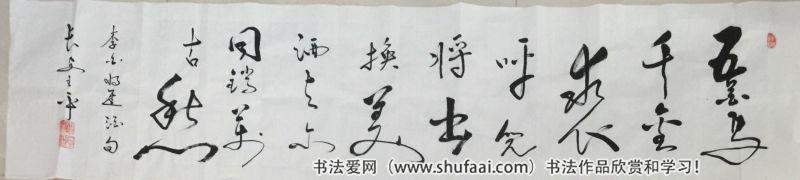 五花马
千金
裘
呼儿
将出
换美
酒与尔
同销万
古愁
李白将进酒句
书法爱网（www.shufaai.com）书法作品欣赏和学习！